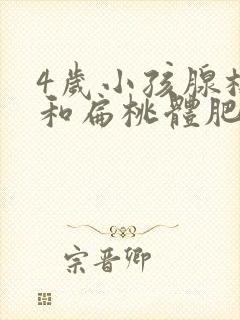 4歲小孩腺
和扁桃體肥
宗晋卿